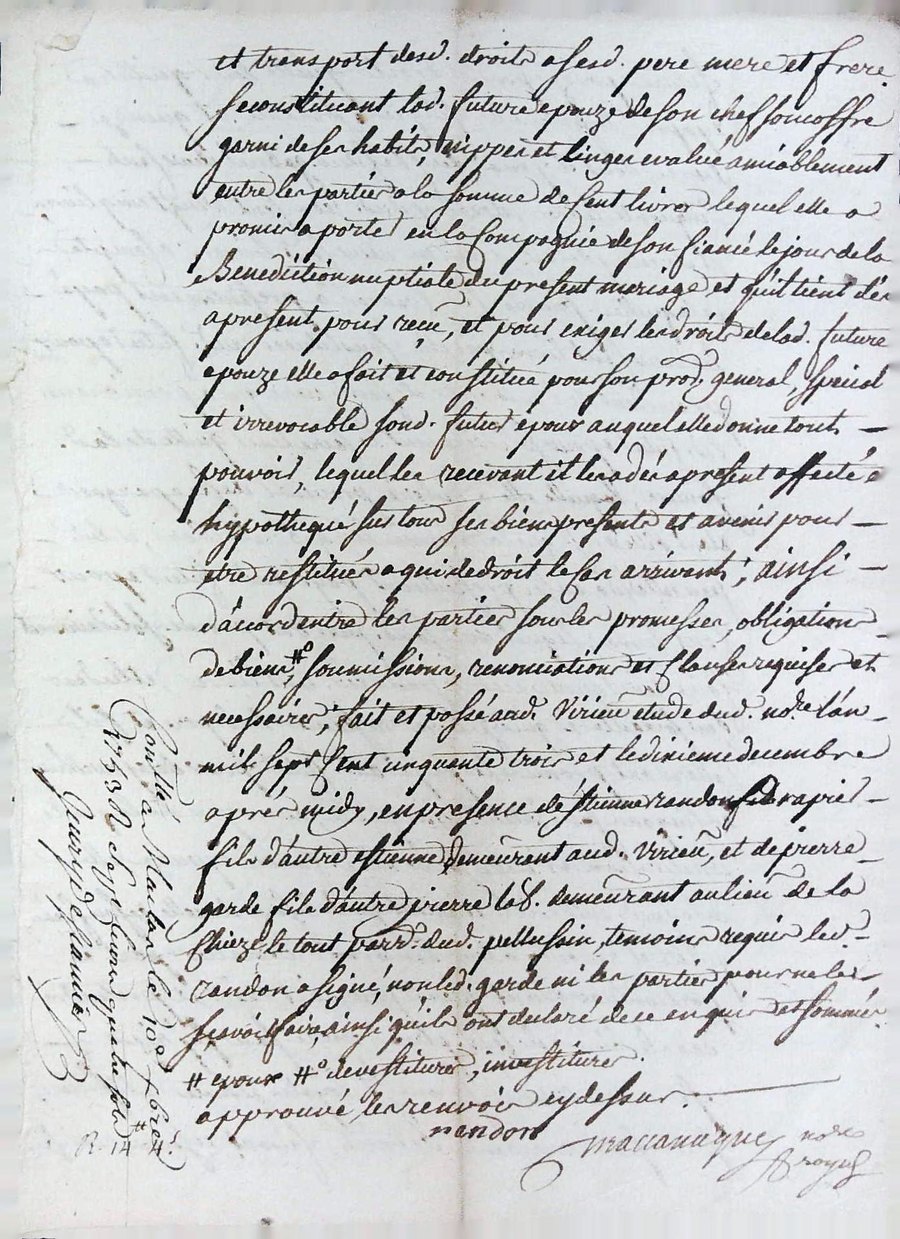 et transport desd. droits a sesd. pere mere et frere
se constituant lad. future epouze de son chef son coffre
garni de ses habits, nippes et linges evalué amiablement
entre les parties a la somme de Cent livres lequel elle a
promis aporté en la Compagnie de son fiancé le jour de la
Benediction nuptiale du present mariage et qu'il tient dés
apresent pour reçu, et pour exiger les droits de lad. future
epouze elle a fait et constitué pour son pror. general, special
et irrevocable sond. futur epoux auquel elle donne tout
pouvoir, lequel les recevant il les a dés apresent affecté et
hypothequé sur tous ses biens presents et avenir pour
etre restitués a qui de droit le cas arrivant; ainsi
d'acord entre les parties sous les promesses, obligations
de biens #°, soumissions, renonciations et Clauses requises et
necessaires; fait et passé aud. Virieu etude dud. nore. l'an
mil sept Cent cinquante trois et le dixieme decembre
aprés midy, en presence de Etienne randon
fils d'autre estienne demeurant aud. Virieu, et de pierre
garde fils d'autre pierre lab. demeurant au lieu de la
Chieze le tout parr. dud. pellussin, temoins requis led.
randon a signé, non led. garde ni les parties pour ne le
sçavoir faire, ainsi qu'ils ont declaré de ce enquis et sommés
# epoux #° devestitures, investitures
approuvé les renvois cy dessus.
randon
nore
royal
Conllé à Maclas le 10e
1753 R
R. 14# 4s